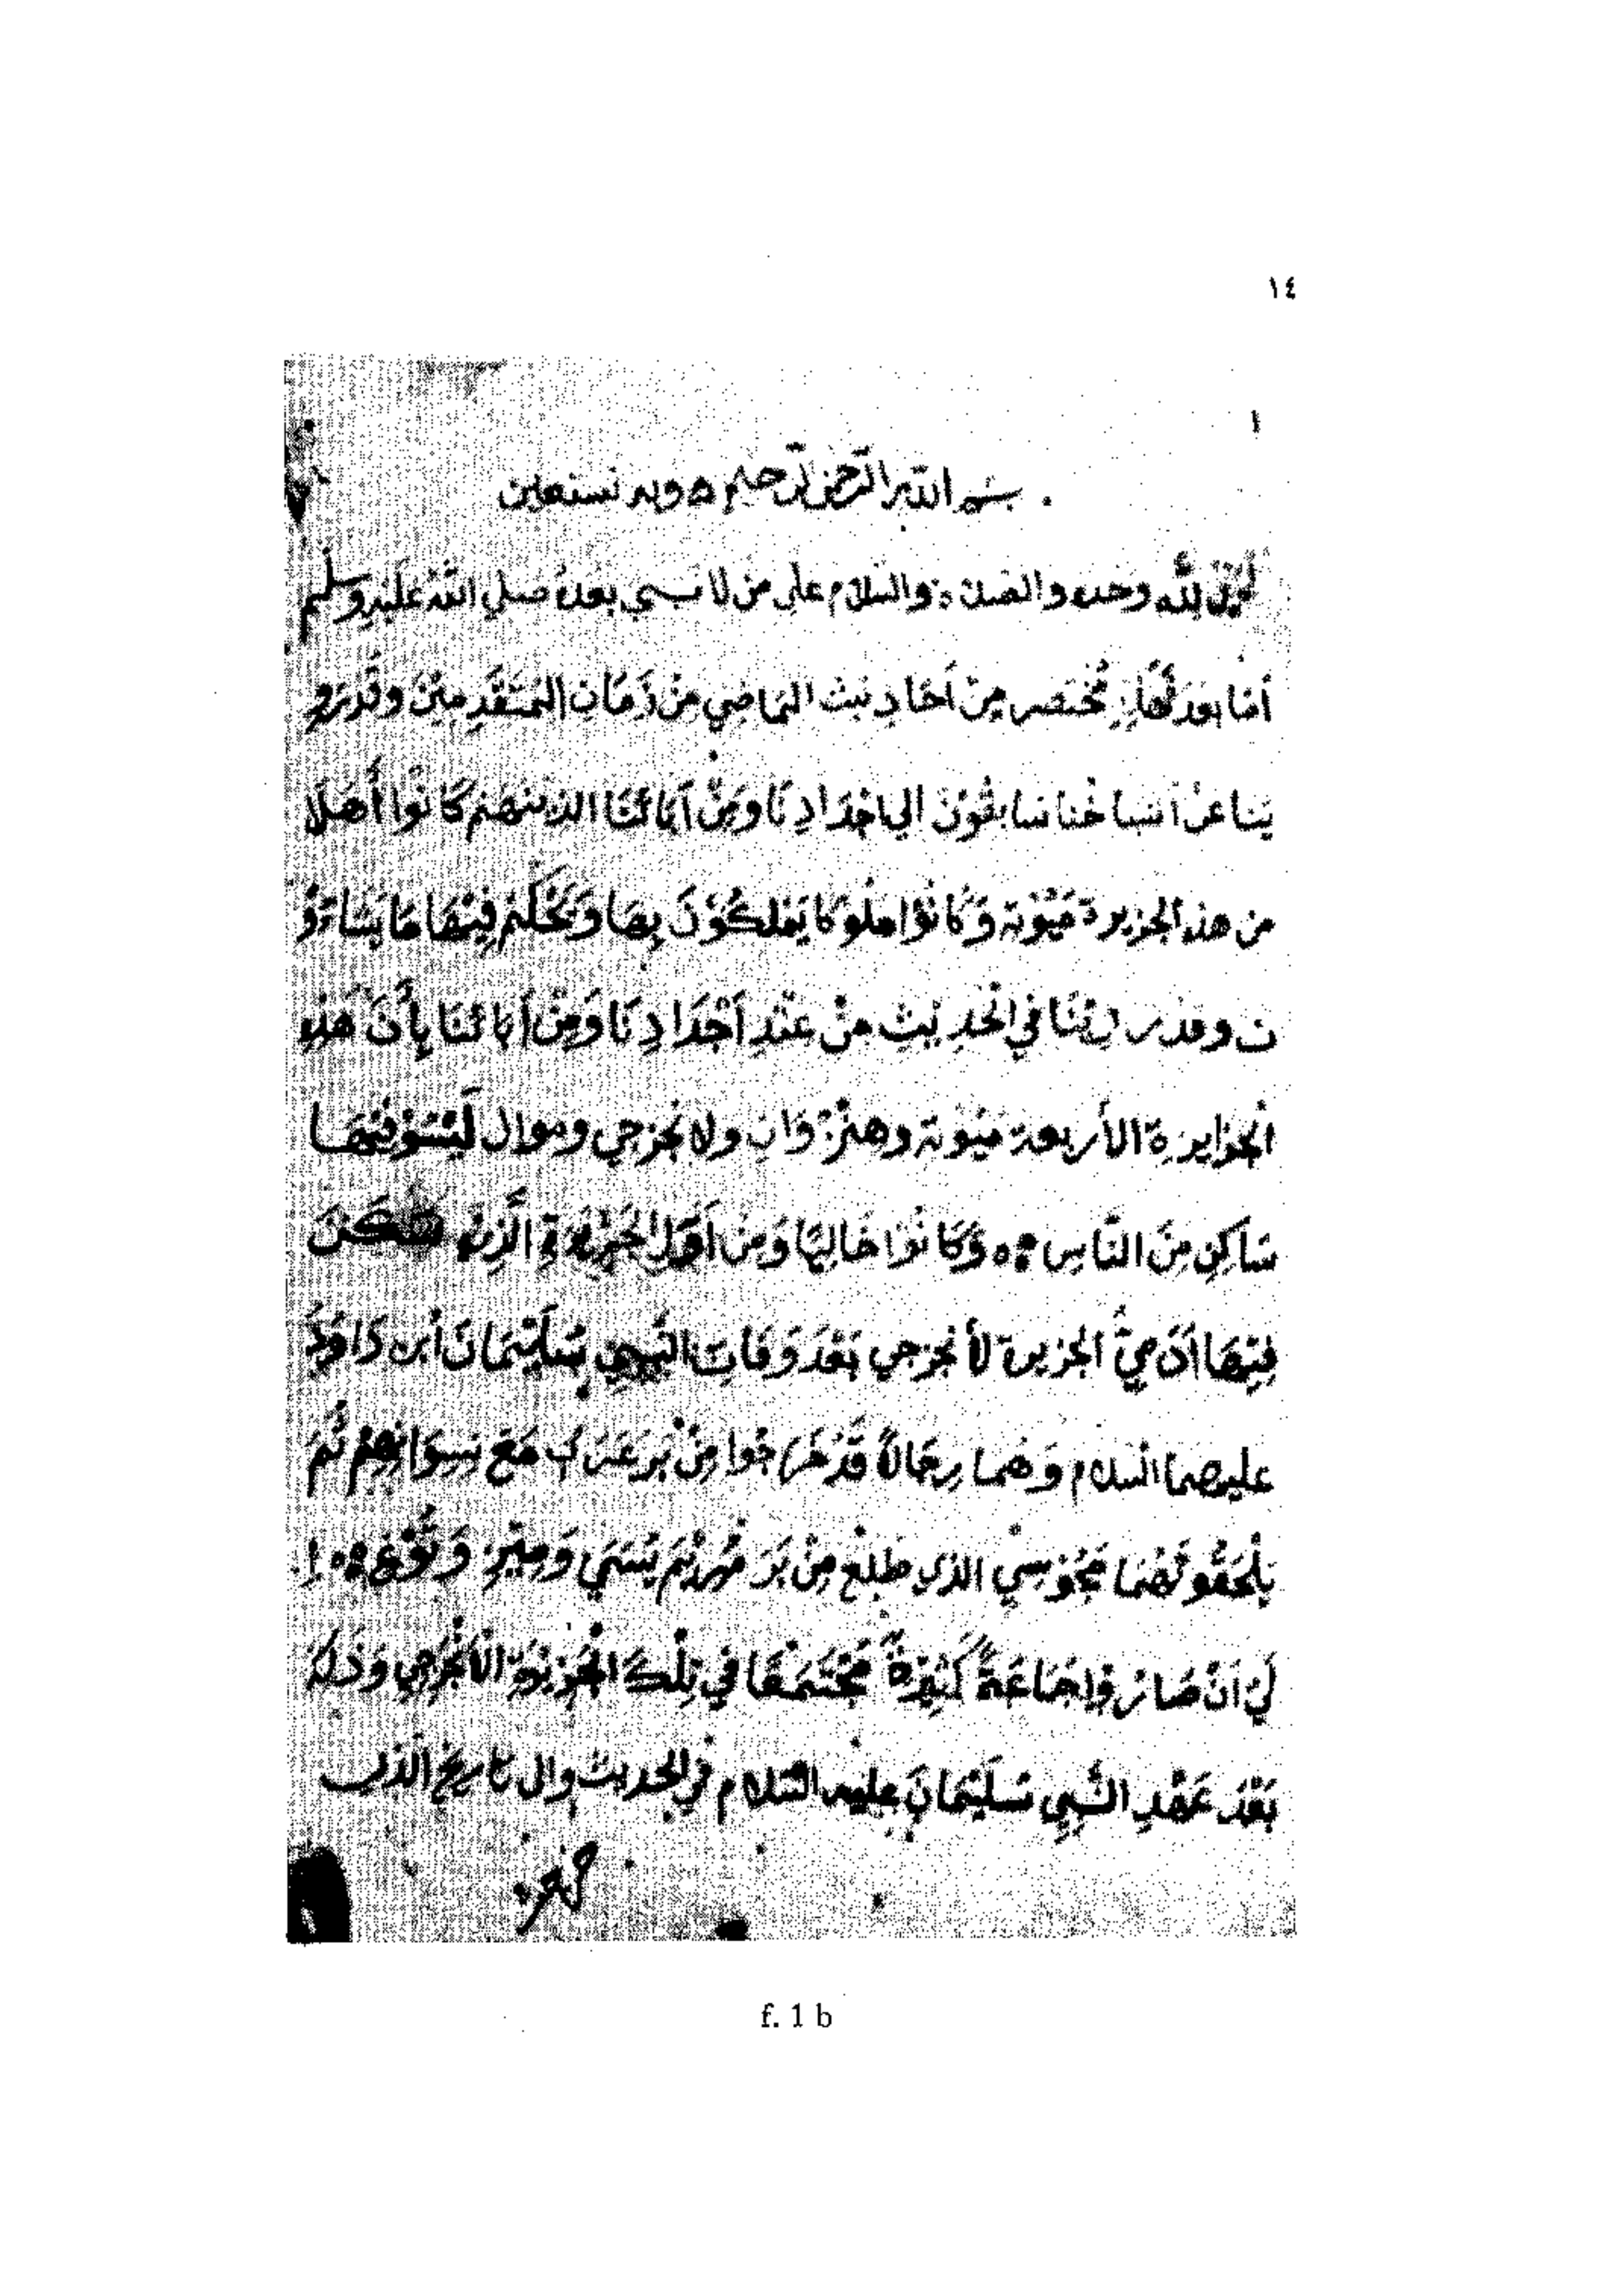 ١٤
١
بسم الله الرحمن الرحيم ه وبه نستعين
لله وحده والصلاة والسلام على من لا نبي بعده صلي الله عليه وسلم
أما بعد مختصر من أحاديث الماضي من زمان المتقدمين وقد رو
ينا عن سابقون الي اجدادنا ومن آبائنا الذينهم كانوا أهلا
من هذه الجزيرة ميوتة وكانوا ملوكا يملكون بها وتحكم فيها ما يشاءو
ن وقد في الحديث من عند أجدادنا ومن آبائنا بأن هذه
الجزايرة الأربعة ميوتة وهنزوان ولا نجزجي وموالي ليسوفيها
ساكن من الناس ه وكانوا خاليا ومن أول الجزيرة الذي سكن
فيها أن هي الجزيرة لأنجزجي بعد وفات النبي سليمان ابن داود
عليهما السلام وهما رجالا قد خراجوا من بر عرب مع نسوانهم ثم
يلحقونهما مجوسي الذي طلع من بر يسمي ه إ
لي ان صاروا جماعة كثيرة مجتمعا في تلك الجزيرة الانجزجي وذلك
بعد عهد النبي سليمان عليه السلام في الحديث وال تاريخ الذي
f. 1 b